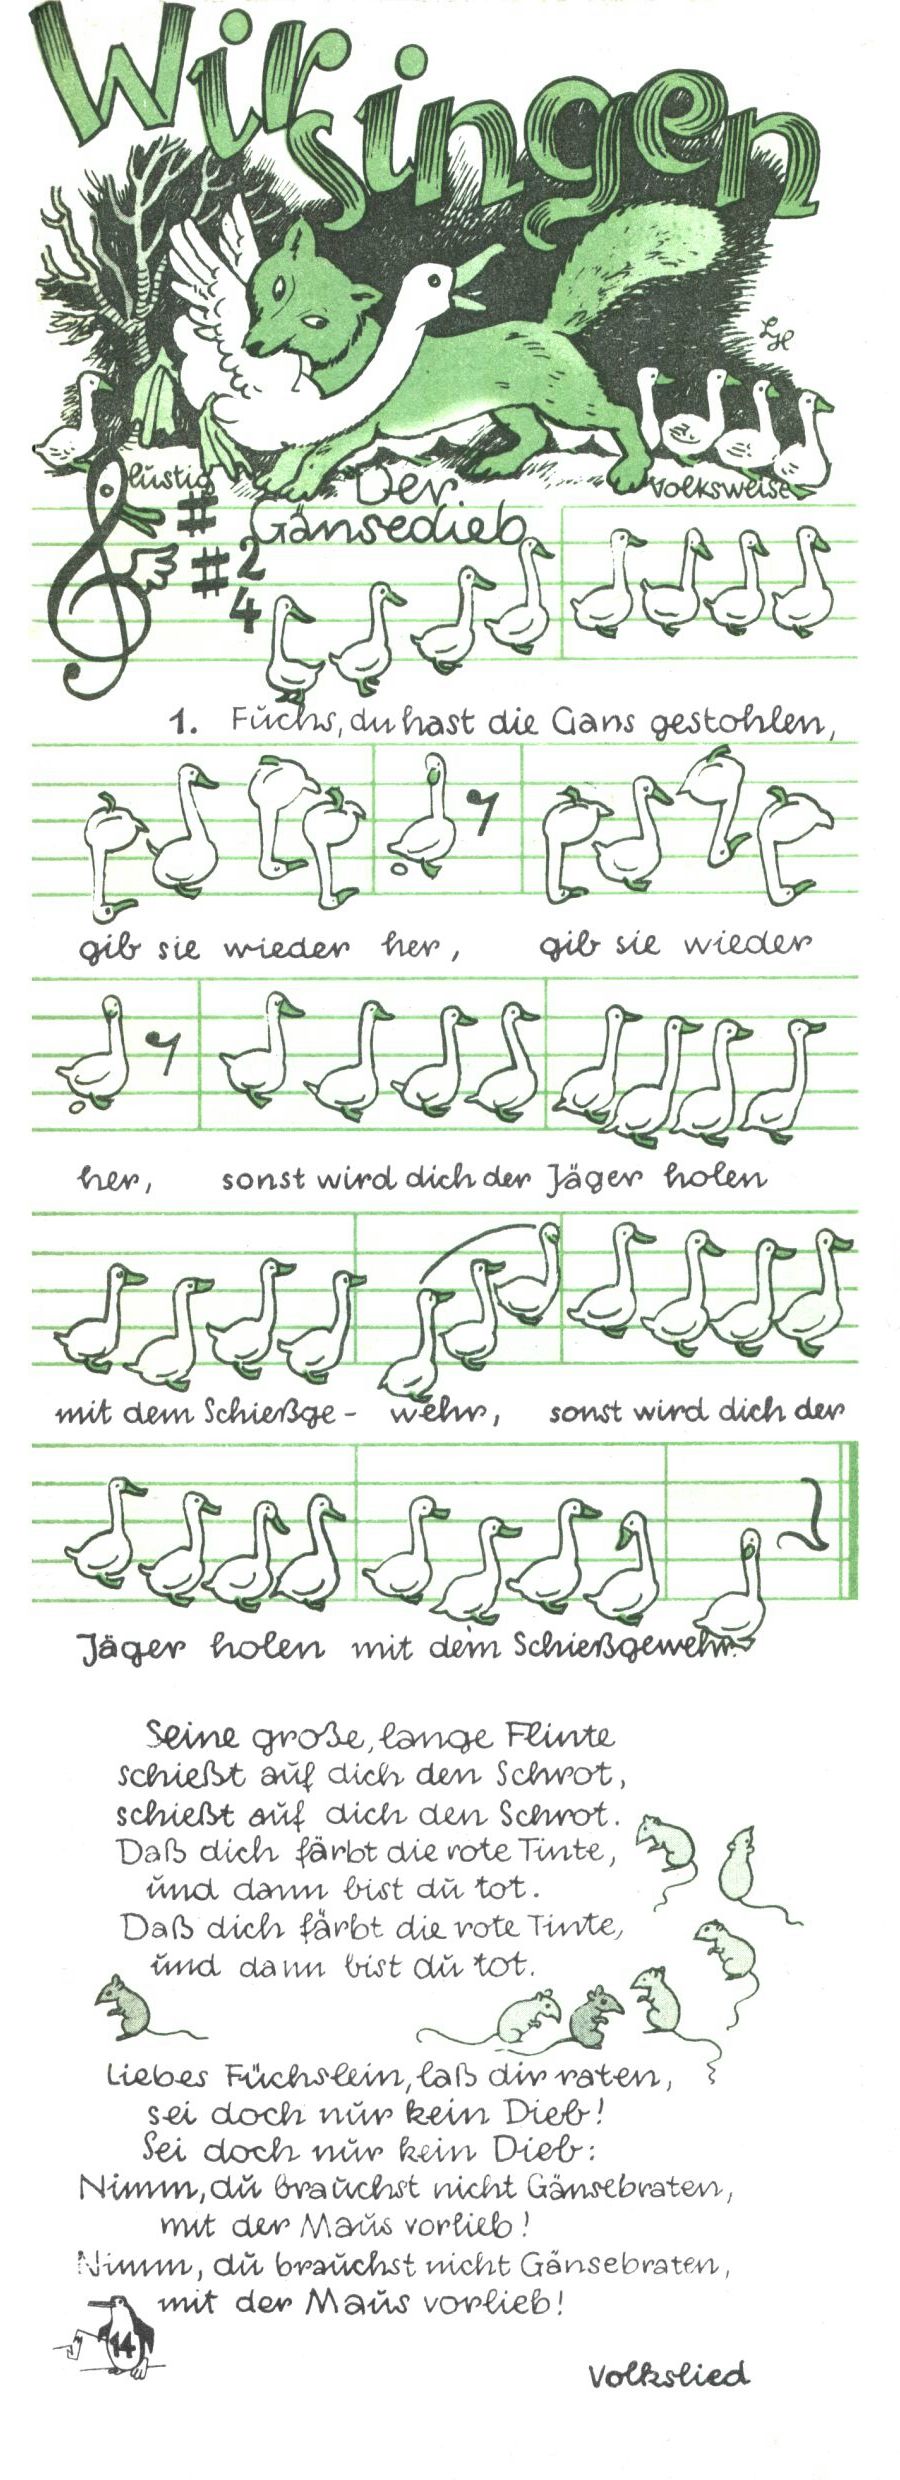 Wir singen
LH
lustig
Volksweise
Der
Gänsedieb
2
4
1. Fuchs, du hast die Gans gestohlen,
gib sie wieder her, gib sie wieder
her, sonst wird dich der Jäger holen
mit dem Schießge- wehr, sonst wird dich der
Jäger holen mit dem Schießgewehr.
Seine große, lange Flinte
schießt auf dich den Schrot,
schießt auf dich den Schrot.
Daß dich färbt die rote Tinte,
und dann bist du tot.
Daß dich färbt die rote Tinte,
und dann bist du tot.
Liebes Füchslein, laß dir raten,
sei doch nur kein Dieb!
Sei doch nur kein Dieb:
Nimm, du brauchst nicht Gänsebraten,
mit der Maus vorlieb!
Nimm, du brauchst nicht Gänsebraten,
mit der Maus vorlieb!
14
Volkslied